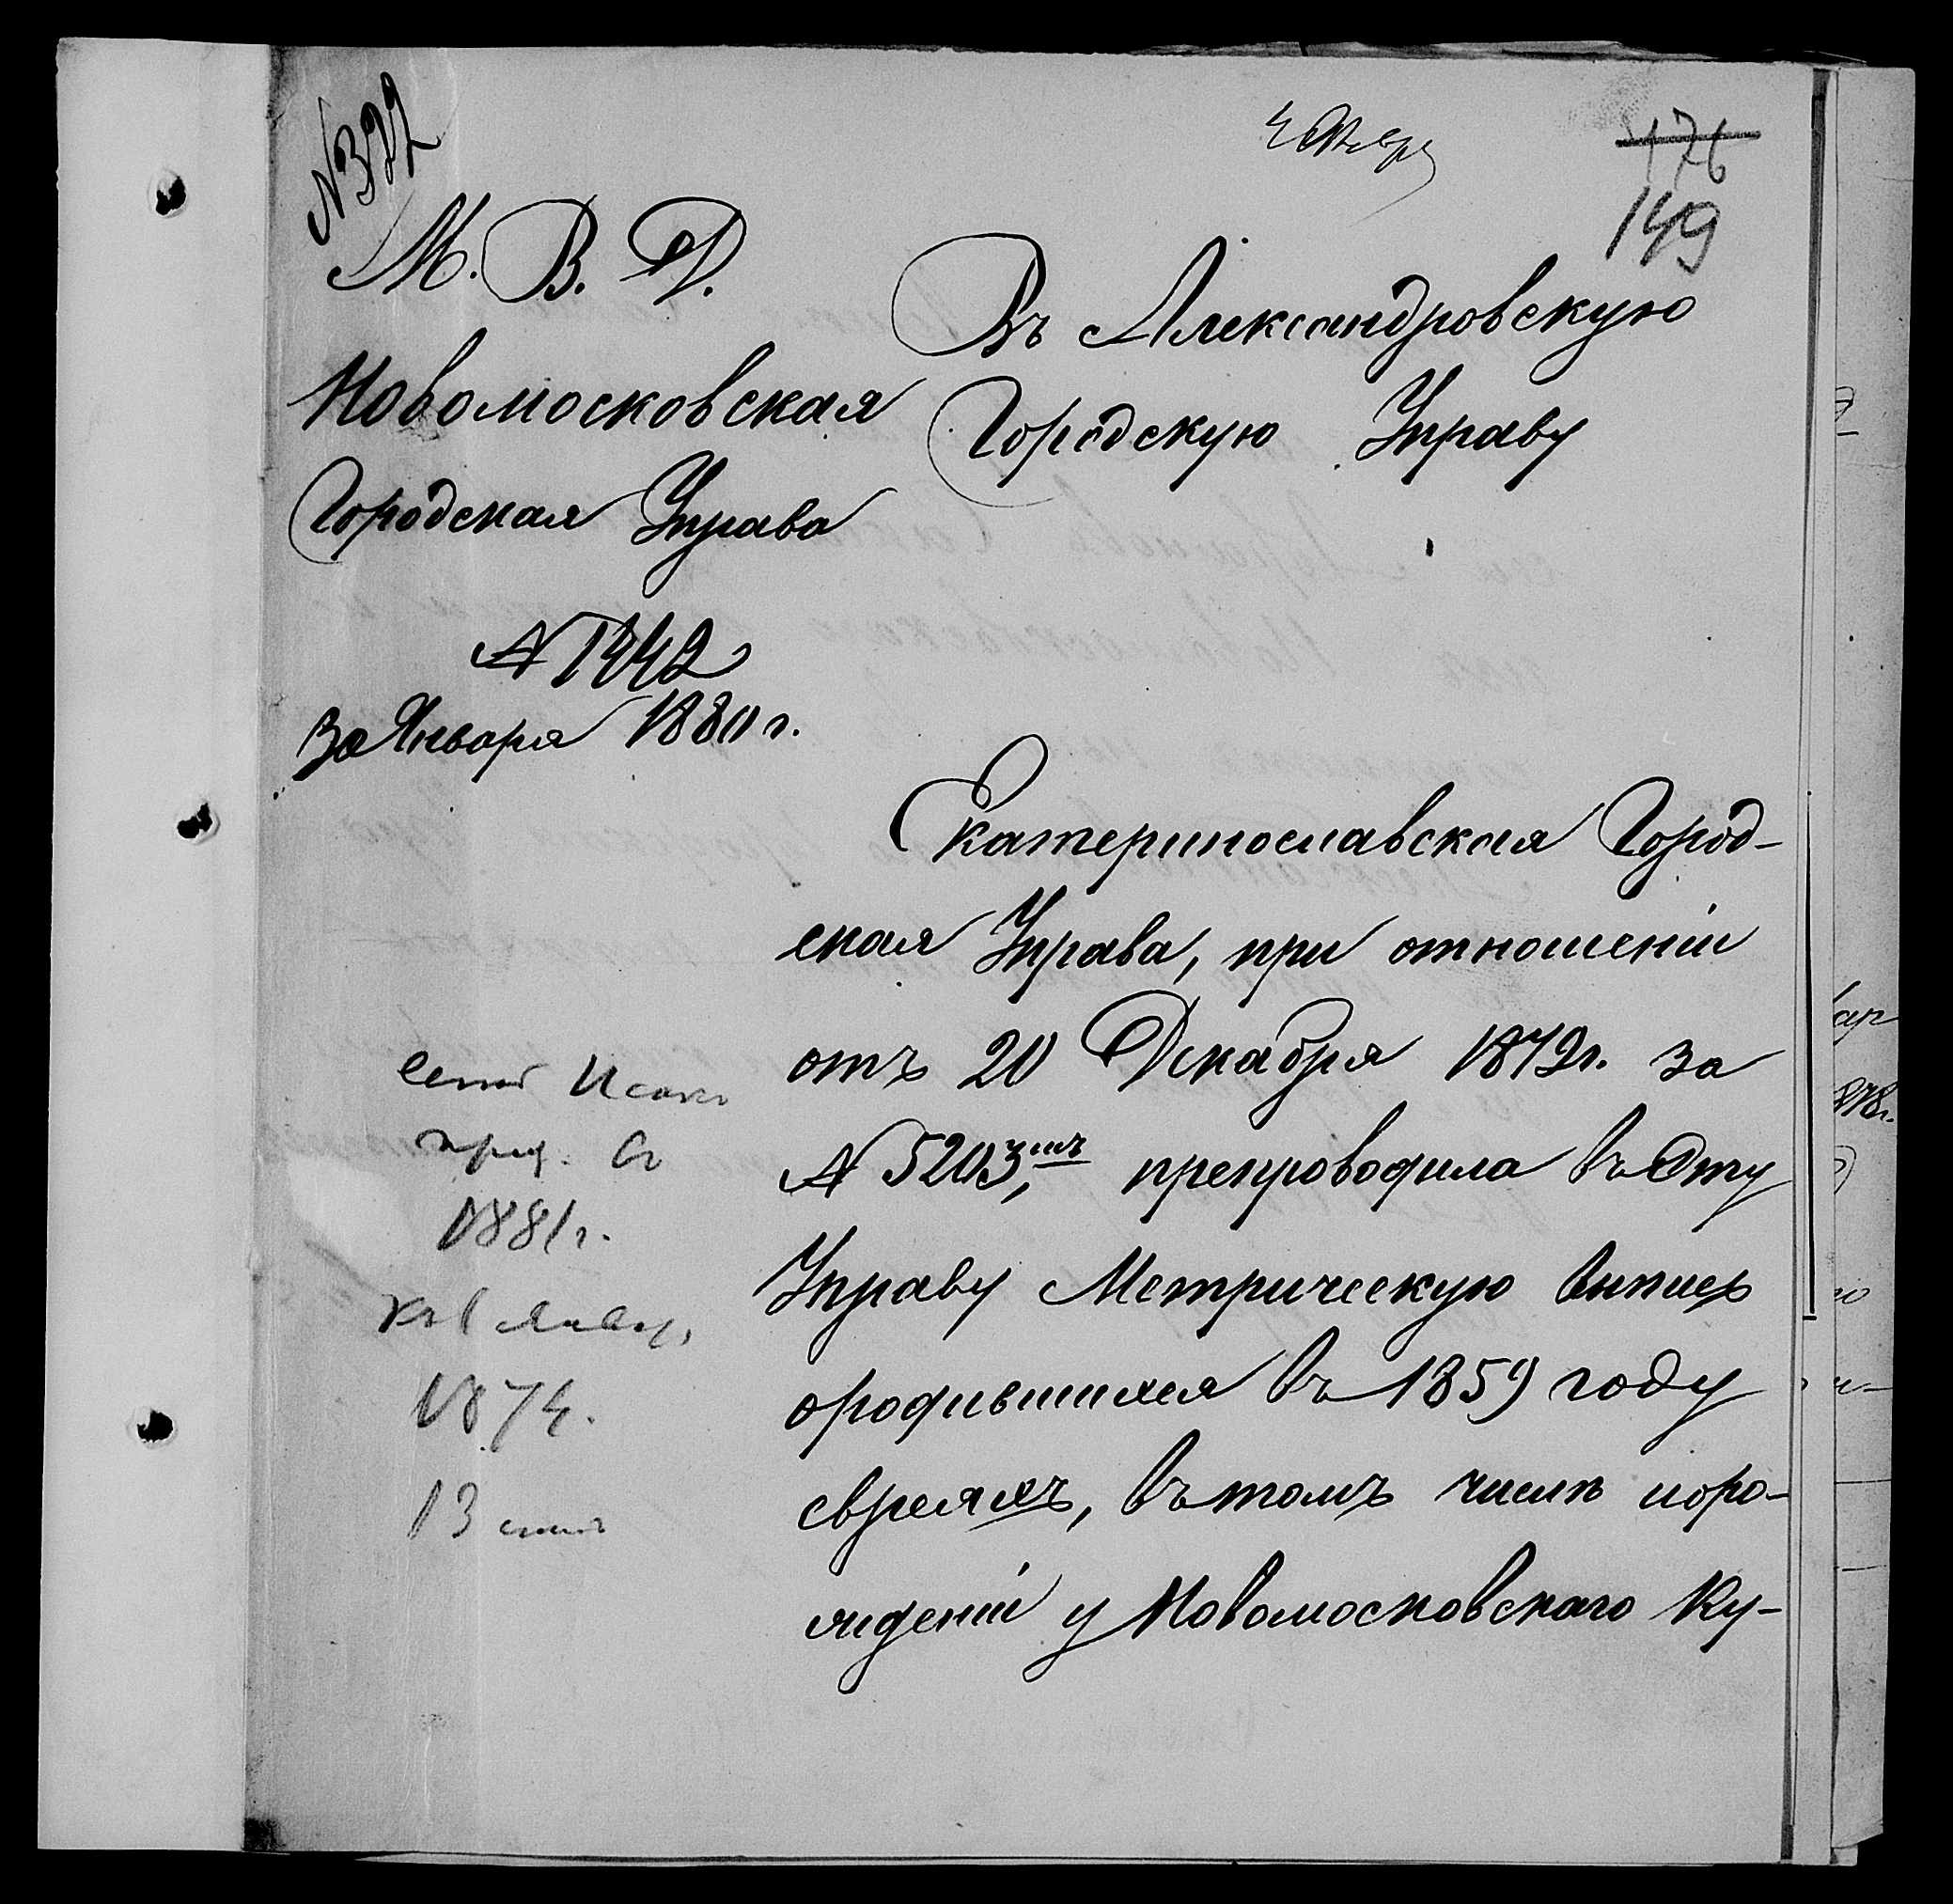 № 322
4 Февр
176
149
М. В. Д.
Новомосковская
Городская Управа
№ 1342
30 Января 1880 г.
Въ Александровскую
Городскую Управу
Екатеринославская Город-
ская Управа, при отношеніи
отъ 20 Декабря 1879 г. за
№ 5203,мъ препроводила въ Эту
Управу Метрическую выпись
о родившихся въ 1859 году
евреяхъ, въ томъ числѣ и о ро-
жденіи у Новомосковскаго Ку-
1881 г.
1874.
13